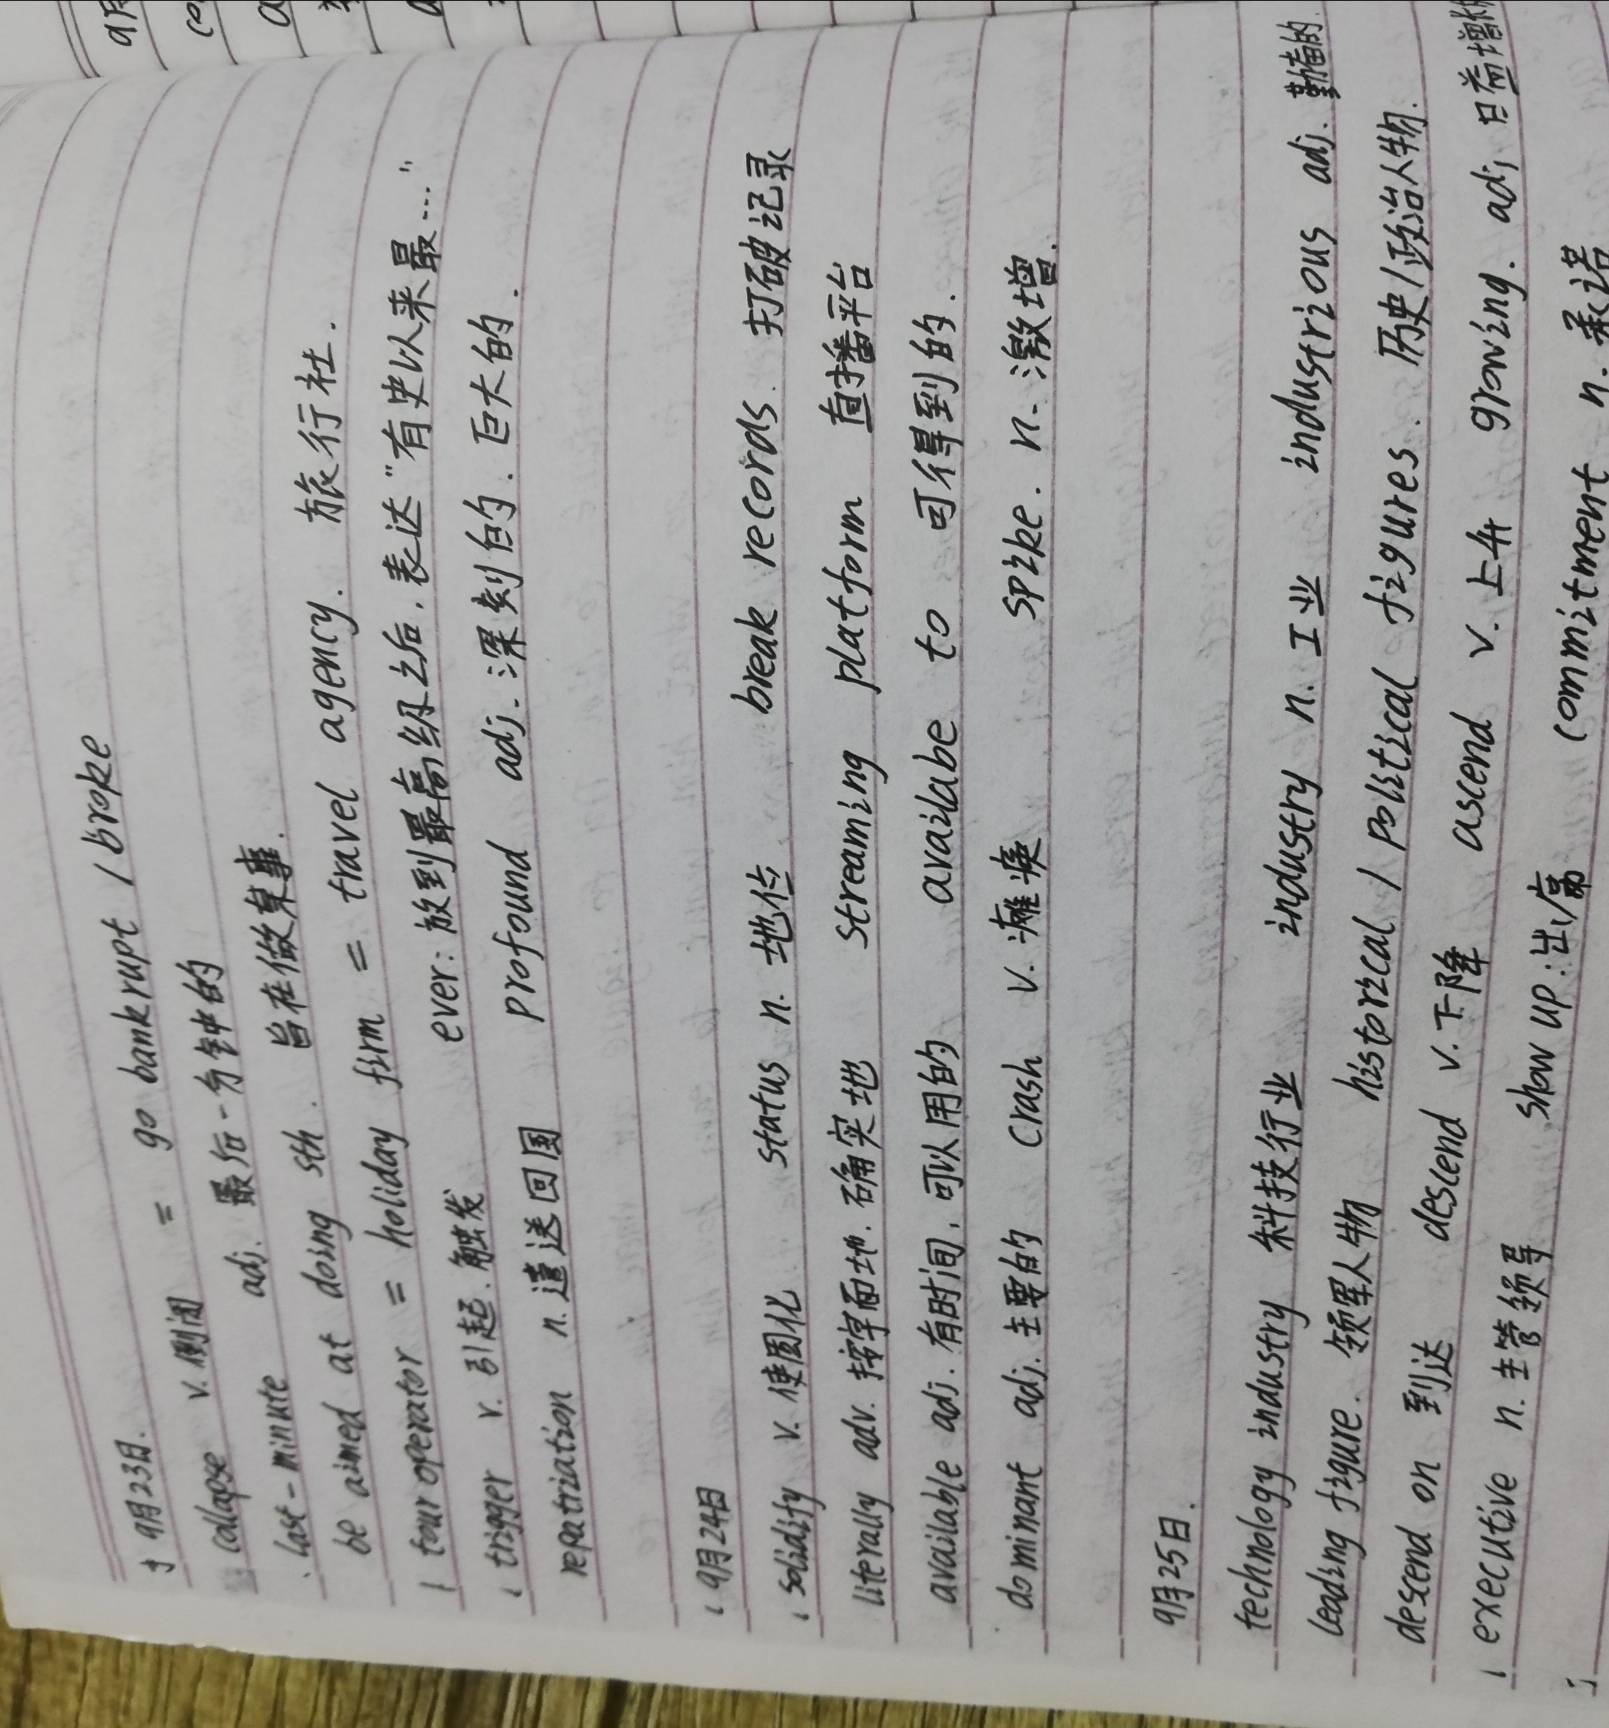 9月23日.
collapse v.倒闭 = go bankrupt / broke
last-minute adj. 最后一分钟的
be aimed at doing sth. 旨在做某事.
tour operator = holiday firm = travel agency. 旅行社.
trigger v. 引起.触发 ever: 放到最高级之后,表达"有史以来最..."
repatriation n.遣送回国 profound adj.深刻的.巨大的.
9月24日
solidify v.使固化 status n.地位 break records. 打破记录
literally adv.按字面地.确实地 streaming platform 直播平台
available adj.有时间,可以用的 availabe to 可得到的.
dominant adj.主要的 crash v.瘫痪 spike. n.激增.
9月25日.
technology industry 科技行业 industry n.工业 industrious adj.勤奋的.
leading figure. 领军人物 historical / political figures. 历史/政治人物.
descend on 到达 descend v.下降 ascend v.上升 growing. adj 日益增长
executive n.主管领导 show up:出席 commitment n.承诺